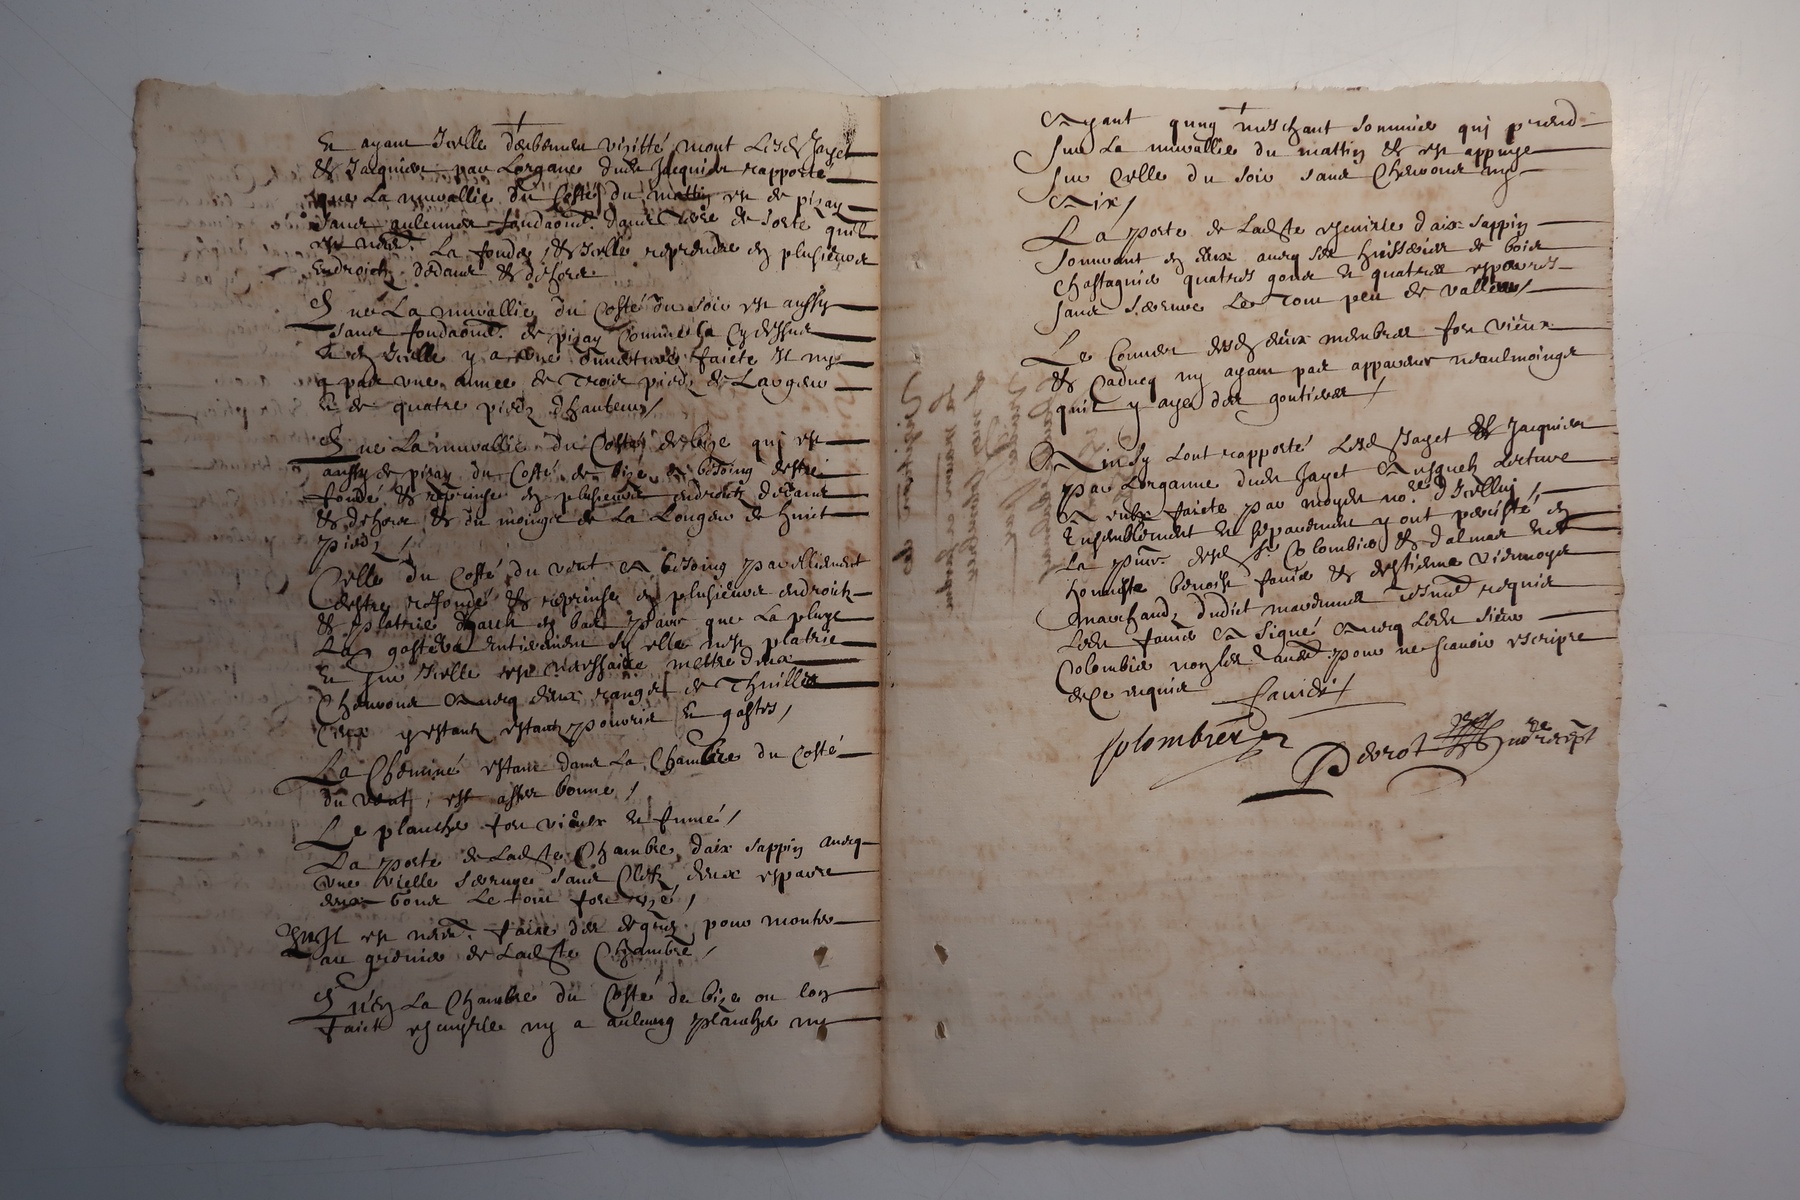 Et ayant Icelle deuement visitté, mont Lesd Jayet
et Jacquier par Lorgane dud Jacquier rapporté
que La muraillie du Costé du mattin est de pizay
sans aulcuns fondaomt. dans Terre de sorte quil
est nere. La fonder, et Icelle reprendre en plusieurs
endroictz dedans et dehors
La muraillie du Costé du soir est aussy
sans fondaomt. de pizay Comme la Cy dessus
Et en Icelle y a une faicte Il ny
a pas une annee de Trois piedz de Largeur
et de quatre piedz dhauteur /
La muraillie du Costé de bize qui est
aussy de pizay du Costé de bize a besoing destre
fondé et reprinse en plusieurs endroictz dedans
et dehors et du moings de La Longeur de huict
piedz /
Celle du Costé du vent a besoing pareillement
destre reffondé et reprinse en plusieurs endroictz
et plattrié en bas parce que La pluye
La gastera entierement sy elle nest plattrie
Et sur Icelle est necessaire mettre deux
Chevrons avecq deux rangs de Thuilles
Ceux y estantz estantz pourris Et gastes /
La Cheminé estant dans La Chambre du Costé
du vent, est asses bonne /
Le planché fort vieux et fumé /
La porte de Ladste Chambre, daix sappin avecq
une vielle serruge sans Clefz, deux espares
deux gonds Le tout fort uzé /
Il est nere. faire des degrez pour monter
au grenier de Ladste Chambre /
La Chambre du Costé de bize ou lon
faict escuyrie ny a aulcung plancher ny
Ayant qung meschant sommier qui prend
sur La muraillie du mattin et est appuye
sur Celle du soir sans Chevrons ny
Aix /
La porte de Ladste escuirie daix sappin
souvrant en deux avecq ses huisseries de bois
chastagnier quatres gonds et quatres espares
sans serrure Le Tout peu de valleur /
Le Couvert desd deux membres fort vieux
et Caducq ny ayant pas apparence neaulmoings
quil y aye des gouttieres /
Ainsy Lont rapporté Lesd Jayet et Jacquier
par Lorganne dud Jayet Ausquelz Lecture
a este faicte par moyd nore dIcelluy,
Ensemblement et separement y ont persisté, en
La pnce. desd Sr Colombier et dalmas et de
honneste benoist favier et destienne viennoys
marchandz dudict requis
Led favier a signé Avecq Led sieur
Colombier non les Autres pour ne scavoir escripre
de Ce requis favier
Colombier
Perrot nore recept